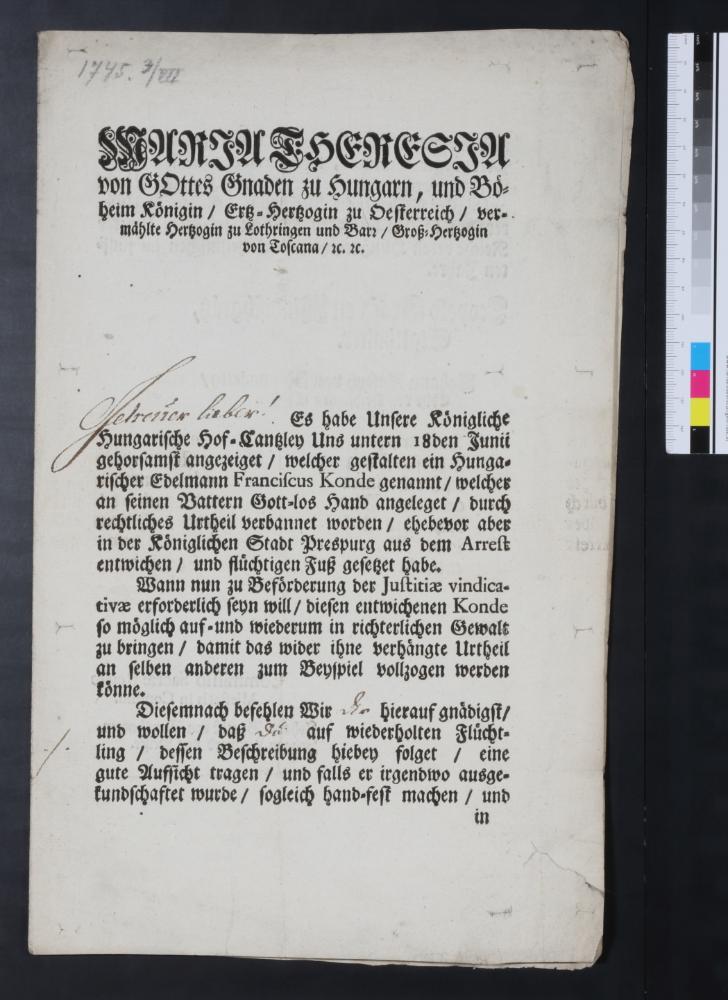 1745. 3/VII
MARIA THERESIA
von GOttes Gnaden zu Hungarn, und Bö-
heim Königin / Ertz-Hertzogin zu Oesterreich / ver-
mählte Hertzogin zu Lothringen und Barr / Groß-Hertzogin
von Toscana / ꝛc. ꝛc.
Getreuer lieber! Es habe Unsere Königliche
Hungarische Hof-Cantzley Uns untern 18den Junii
gehorsamst angezeiget / welcher gestalten ein Hunga-
rischer Edelmann Franciscus Konde genannt / welcher
an seinen Vattern Gott-los Hand angeleget / durch
rechtliches Urtheil verbannet worden / ehebevor aber
in der Königlichen Stadt Prespurg aus dem Arrest
entwichen / und flüchtigen Fuß gesetzet habe.
Wann nun zu Beförderung der Justitiæ vindica-
tivæ erforderlich seyn will / diesen entwichenen Konde
so möglich auf-und wiederum in richterlichen Gewalt
zu bringen / damit das wider ihne verhängte Urtheil
an selben anderen zum Beyspiel vollzogen werden
könne.
Diesemnach befehlen Wir dir hierauf gnädigst /
und wollen / daß du auf wiederholten Flücht-
ling / dessen Beschreibung hiebey folget / eine
./.
gute Aufsicht tragen / und falls er irgendwo ausge-
kundschaftet wurde / sogleich hand-fest machen / und
in